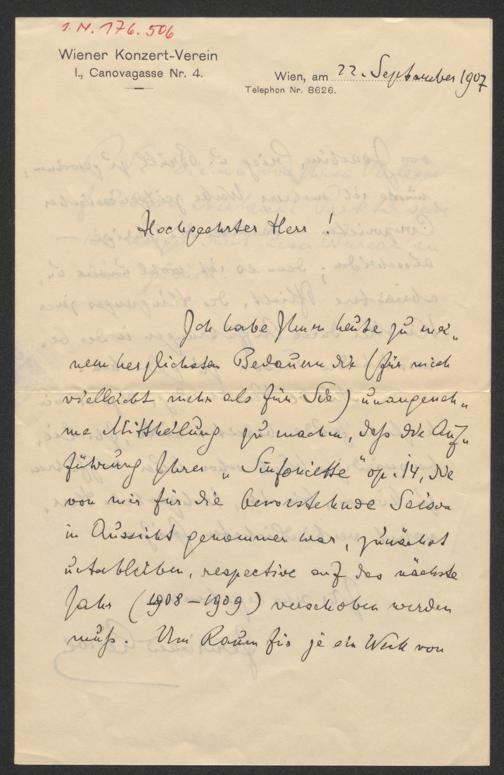 I. N. 176.506
Wiener Konzert-Verein
I., Canovagasse Nr. 4.
Wien, am 22. September 1907
Telephon Nr. 8626.
Hochgeehrter Herr!
Ich habe Ihnen heute zu mei-
nem herzlichsten Bedauern die (für mich
vielleicht mehr als für Sie) unangeneh-
me Mittheilung zu machen, daß die Auf-
führung Ihrer „Sinfoniette" op. 14, die
von mir für die bevorstehende Saison
in Aussicht genommen war, zunächst
unterbleiben, respective auf das nächste
Jahr (1908–1909) verschoben werden
muß. Um Raum für je ein Werk von